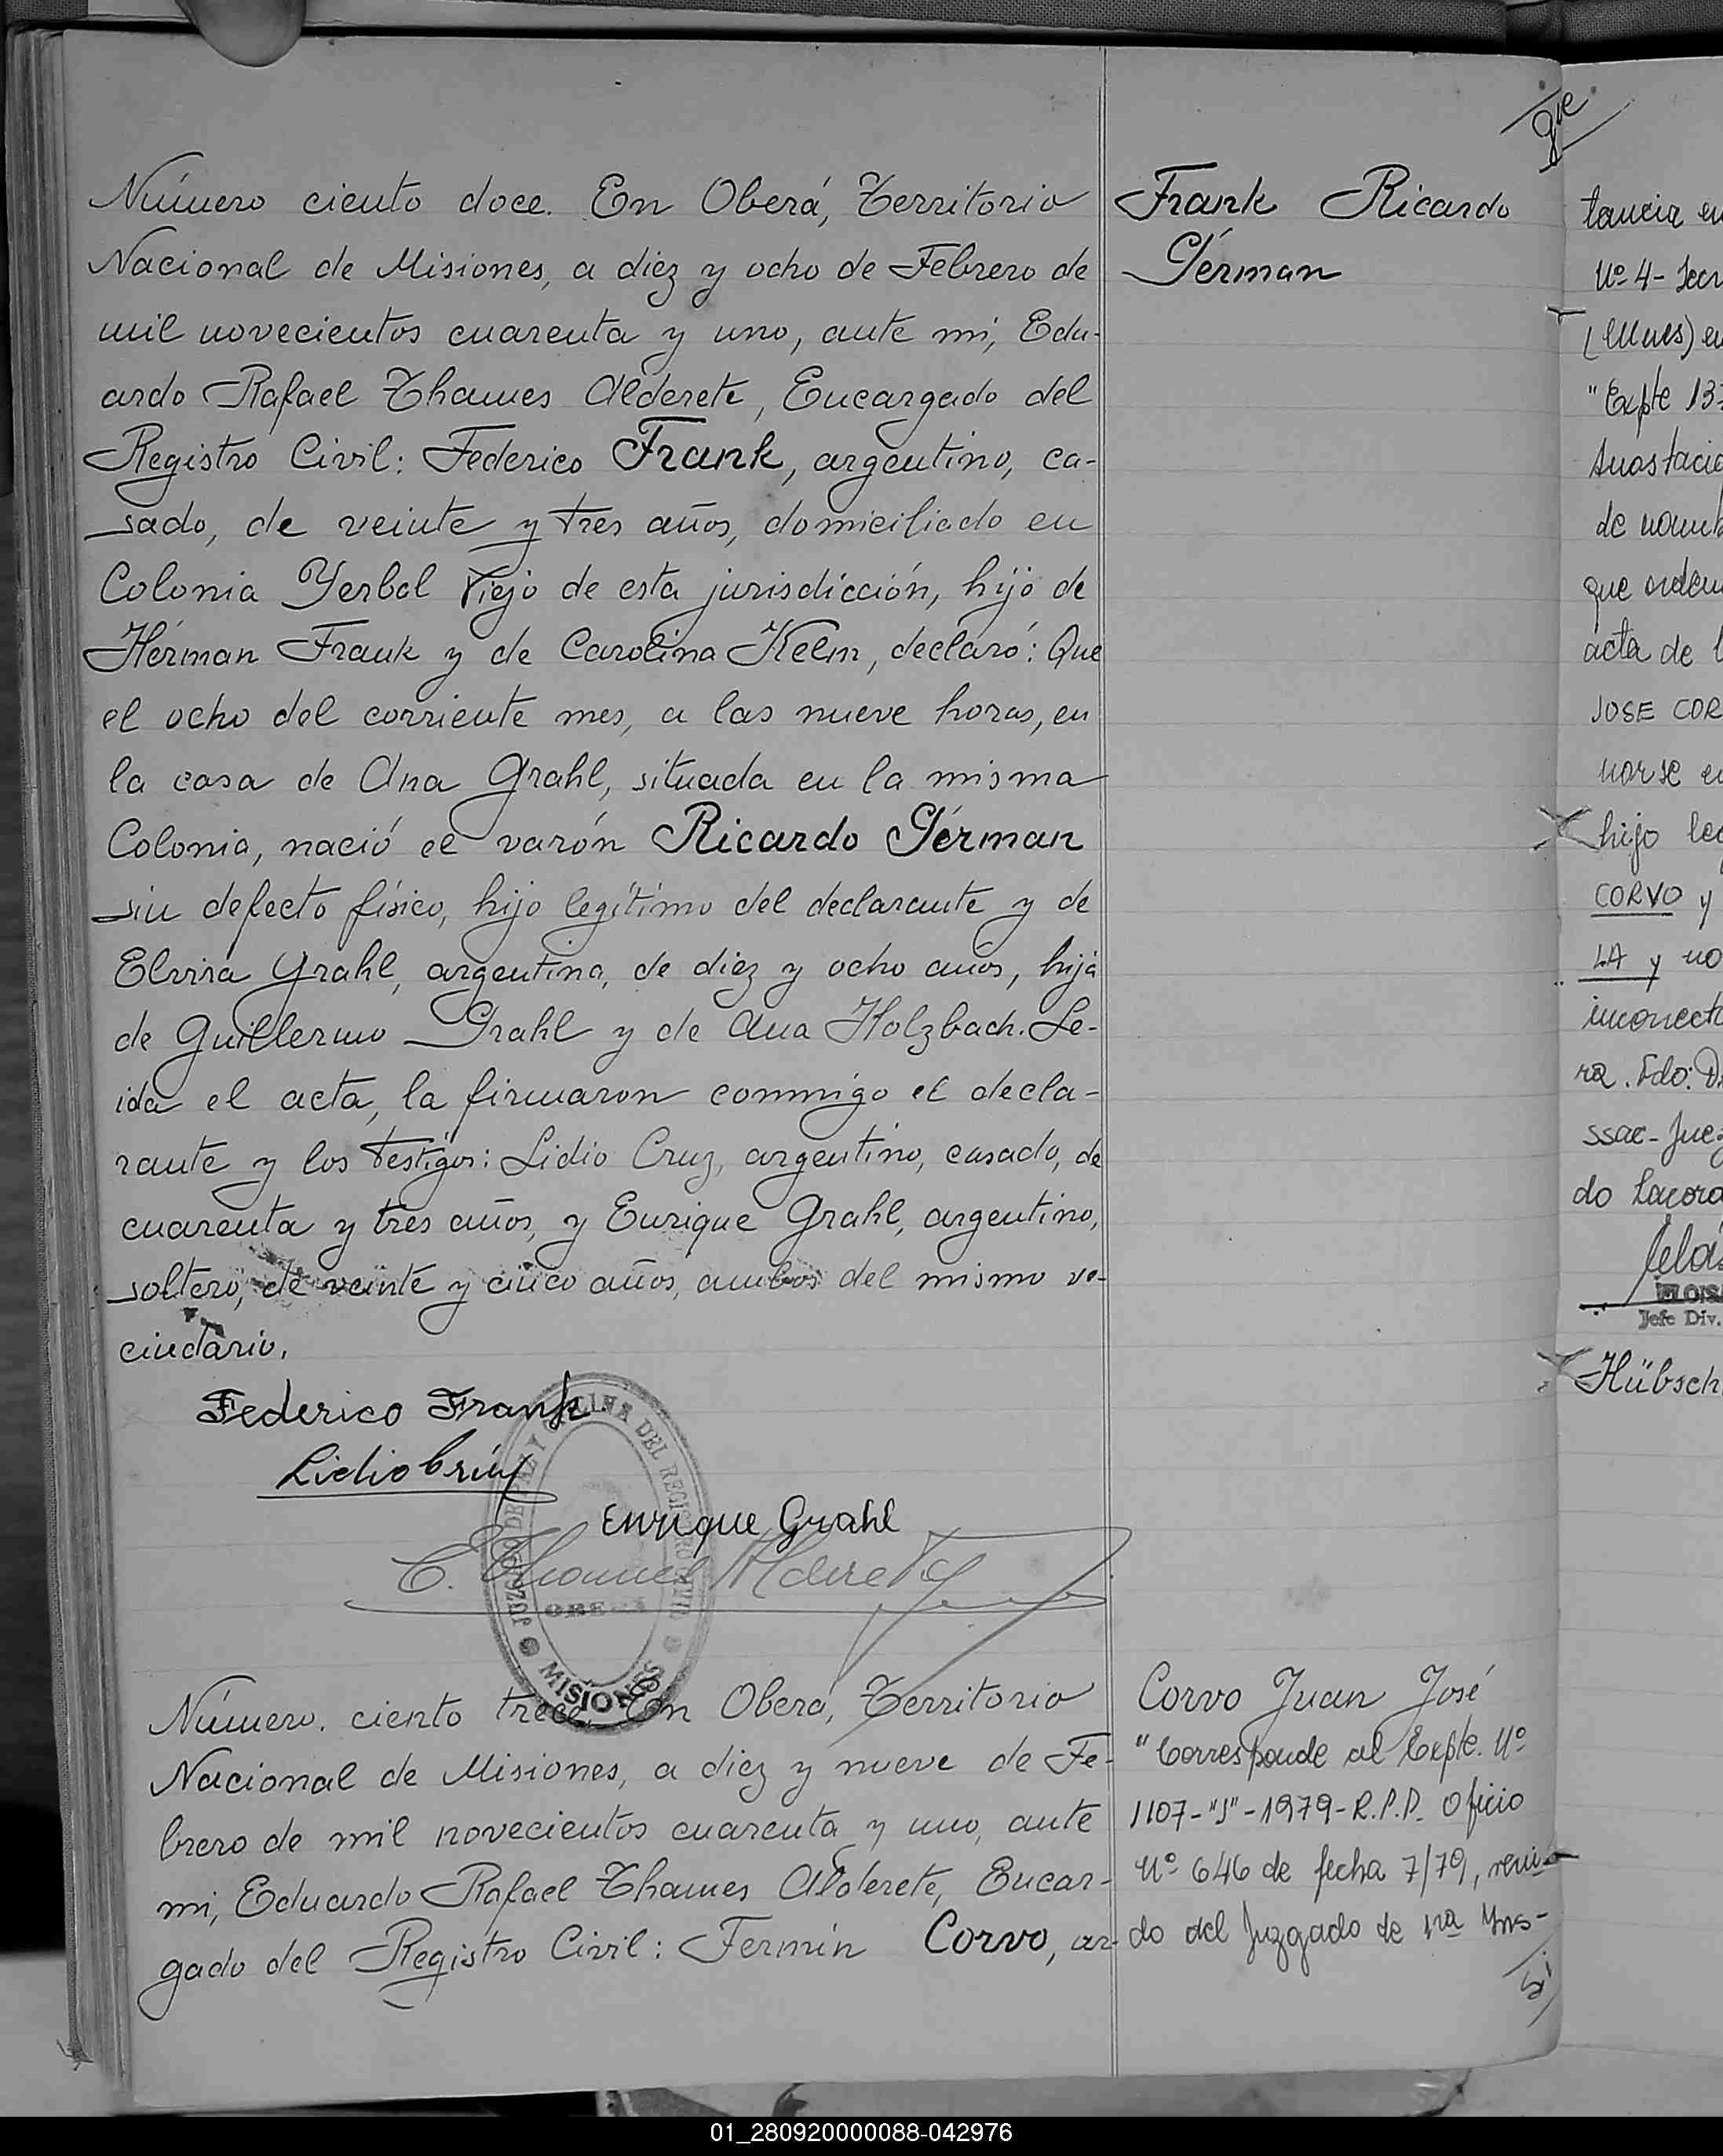 Número ciento doce. En Oberá, Territorio
Nacional de Misiones, a diez y ocho de Febrero de
mil novecientos cuarenta y uno, ante mi, Edu-
ardo Rafael Thames Alderete, Encargado del
Registro Civil: Federico Frank, argentino, ca-
sado, de veinte y tres años, domiciliado en
Colonia Yerbal Viejo de esta jurisdicción, hijo de
Hérman Frank y de Carolina Kelm, declaró: Que
el ocho del corriente mes, a las nueve horas, en
la casa de Ana Grahl, situada en la misma
Colonia, nació el varón Ricardo Gérman
sin defecto físico, hijo legítimo del declarante y de
Elvira Grahl, argentina, de diez y ocho años, hija
de Guillermo Grahl y de Ana Holzbach. Le-
ida el acta, la firmaron conmigo el decla-
rante y los testigos: Lidio Cruz, argentino, casado, de
cuarenta y tres años, y Enrique Grahl, argentino,
soltero, de veinte y cinco años, ambos del mismo ve-
cindario.
Federico Frank
Lidio Cruz
Enrique Grahl
E. Thames Alderete
JUZGADO DE PAZ Y OFICINA DEL REGISTRO CIVIL
OBERÁ
MISIONES
Frank Ricardo
Gérman
Número. ciento trece. En Oberá, Territorio
Nacional de Misiones, a diez y nueve de Fe-
brero de mil novecientos cuarenta y uno, ante
mi, Eduardo Rafael Thames Alderete, Encar-
gado del Registro Civil: Fermín Corvo, ar-
Corvo Juan José
"Corresponde al Expte. Nº
1107-"J"-1979-R.P.D. Oficio
Nº 646 de fecha 7/79, remi-
do del Juzgado de 1ra Ins-
tancia en
Nº 4- Secr
"Expte 13
Anastacio
de nomb
que orden
acta de l
JOSE COR
narse en
hijo leg
CORVO y
LA y no
incorrecto
ra. Fdo: D
ssac- Juez
do Lacora
ELOIS
Jefe Div.
Hübsch
01_280920000088-042976